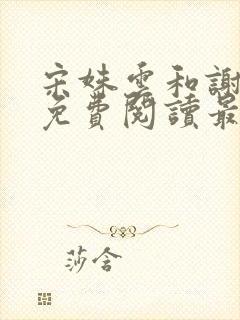 宋姝雲和謝
免費閱讀最
莎含